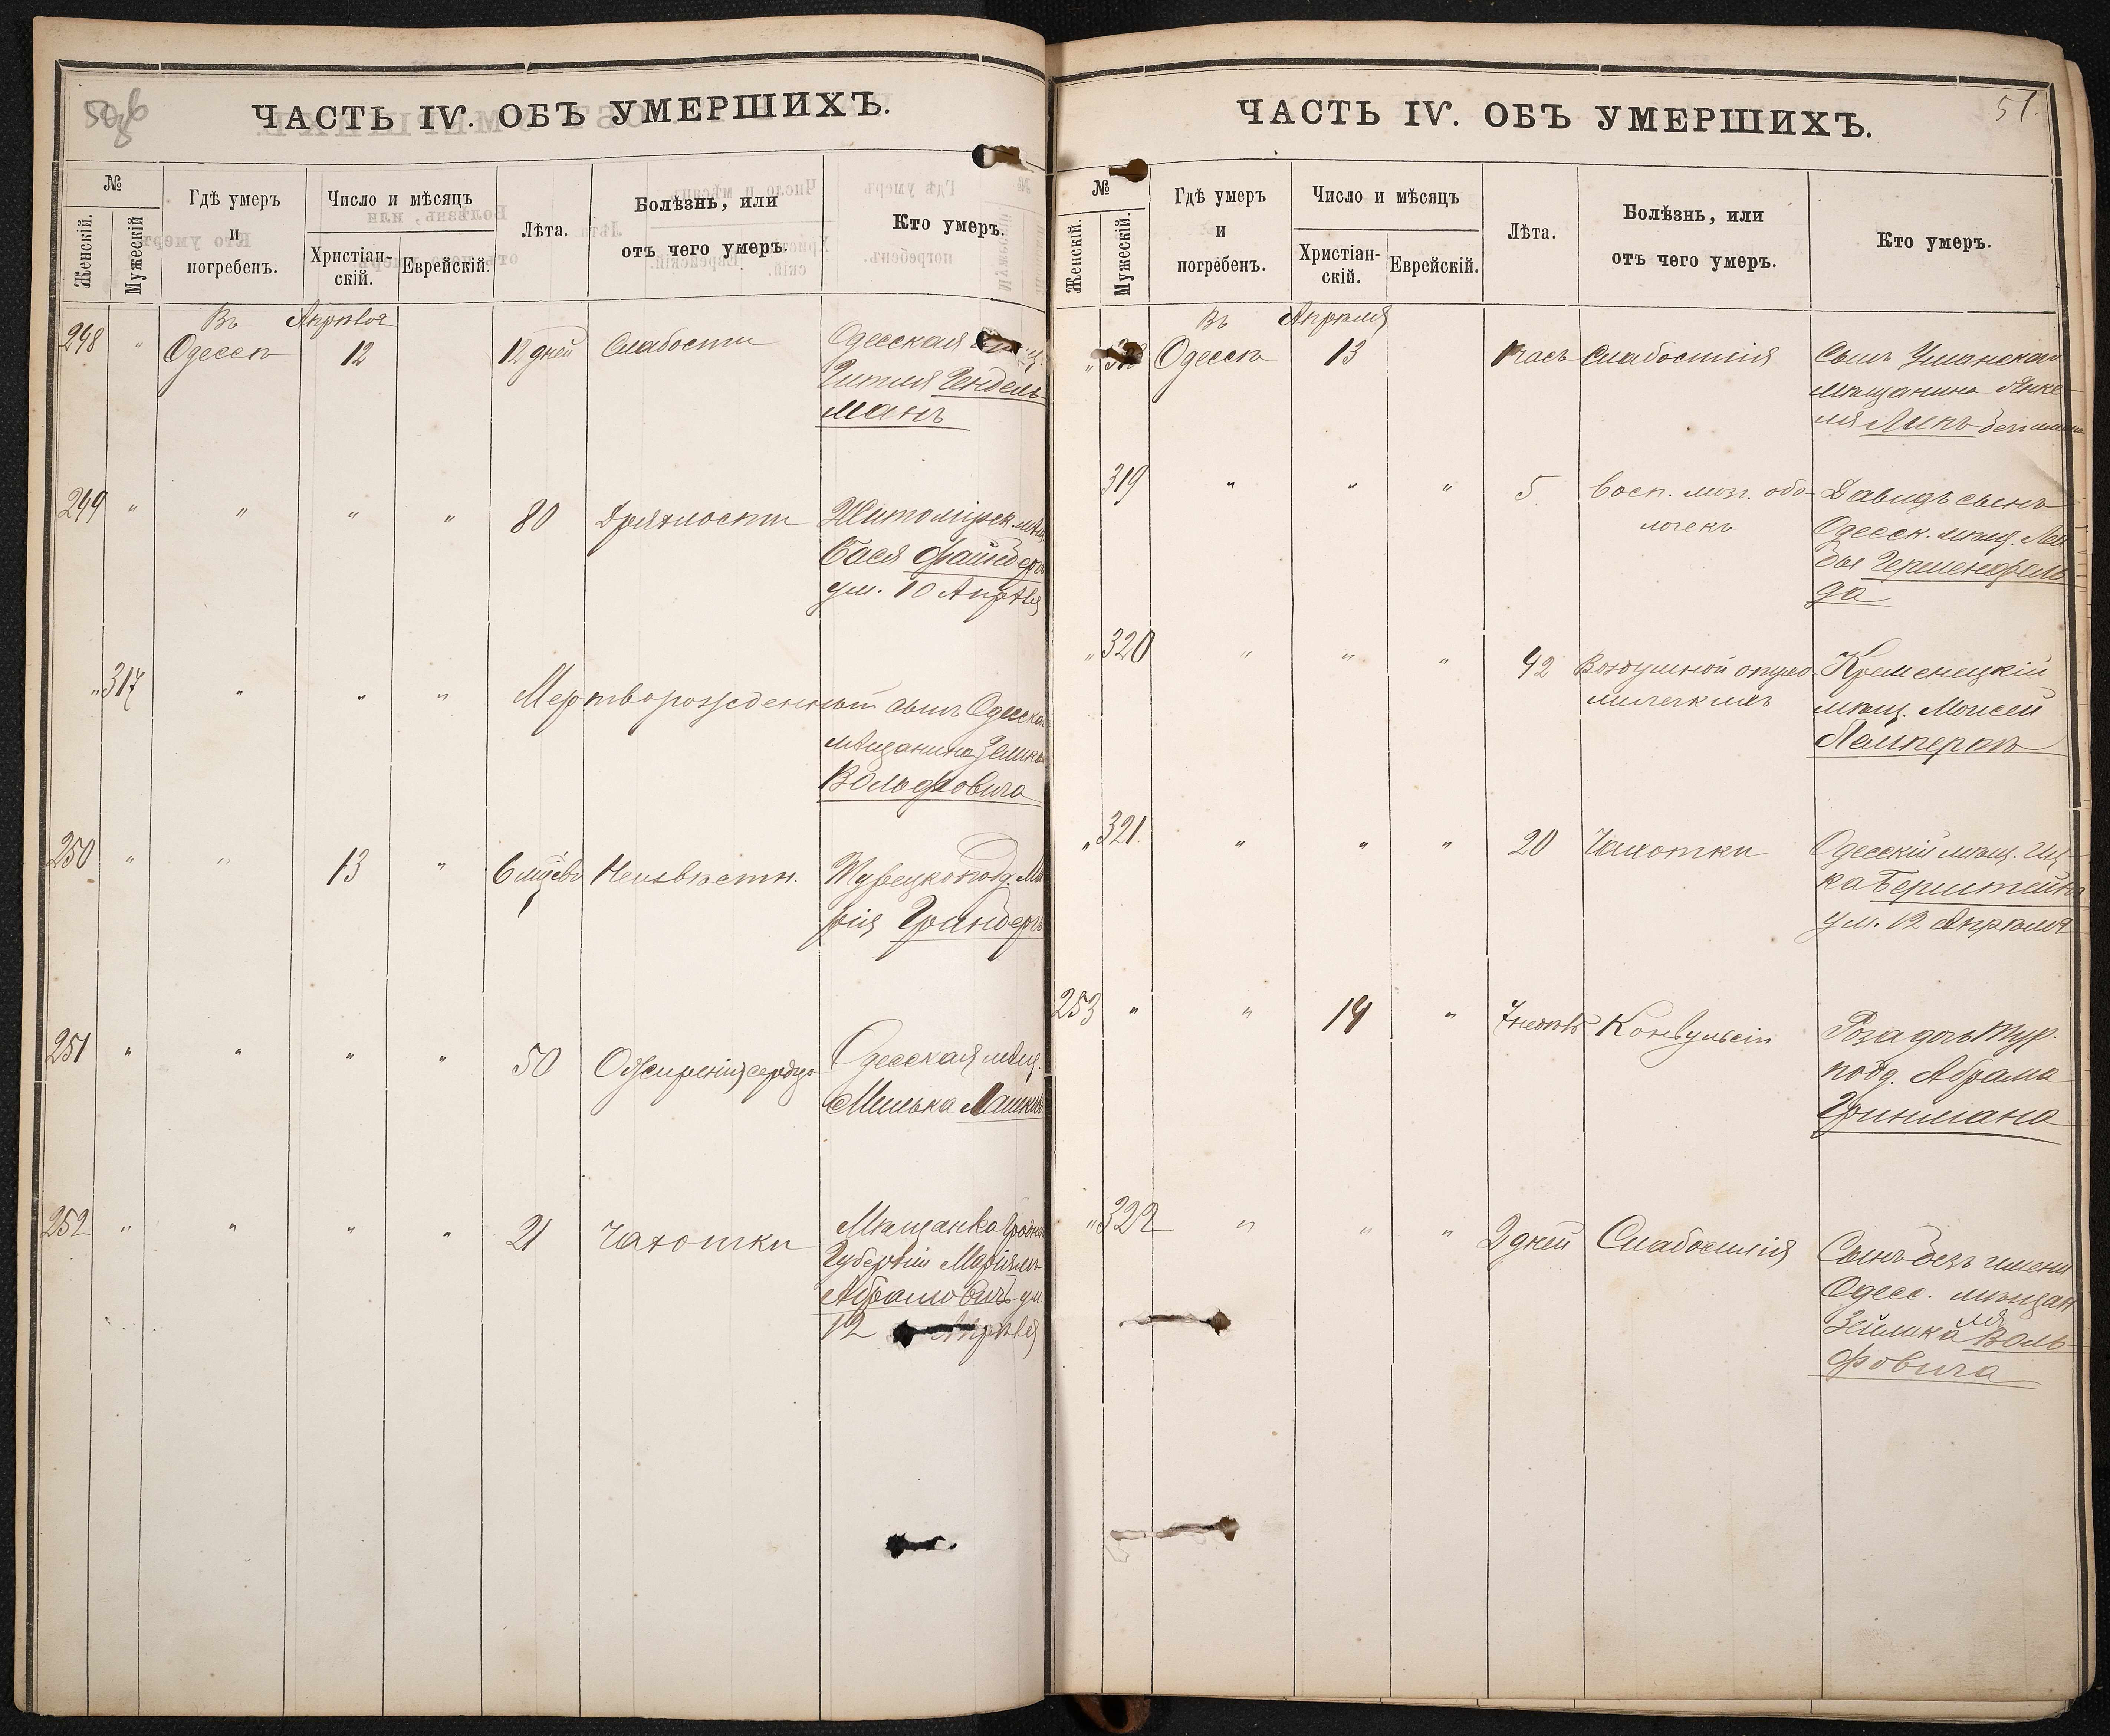 ЧАСТЬ IV. ОБЪ УМЕРШИХЪ.
№
Женскій.
Мужескій
Гдѣ умеръ
и
погребенъ.
Число и мѣсяцъ
Христіан-
скій.
Еврейскій.
Лѣта.
Болѣзнь, или
отъ чего умеръ.
Кто умеръ.
Въ Апрѣля
248 " Одессѣ 12 12 дней Слабости Одесская
Гитля Гендель-
манъ
249 " " " " 80 Дряхлости Житомірск. мѣщ.
Бася Файнбергъ
ум. 10 Апрѣля
" 317 " " " Мертворожденный сынъ Одесска
мѣщанина Зелика
Вольфовича
250 " " 13 " 6 мѣсев Неизвѣстн. Турецкопод. Ма
рія Гринбергъ
251 " " " " 50 Ожиренія сердца Одесская мѣщ.
Милька
252 " " " " 21 Чахотки Мѣщанка Гродн
Губерніи Маріямъ
Абрамовичъ ум.
12 Апрѣля
ЧАСТЬ IV. ОБЪ УМЕРШИХЪ.
51.
№
Женскій.
Мужескій.
Гдѣ умеръ
и
погребенъ.
Число и мѣсяцъ
Христіан-
скій.
Еврейскій.
Лѣта.
Болѣзнь, или
отъ чего умеръ.
Кто умеръ.
Въ Апрѣля
" Одессѣ 13 1 часъ Слабосилія Сынъ Уманскаго
мѣщанина Янке-
ля Липъ безъ имени
319 " " " 5 Восп. мозг. обо- Давидъ сынъ
лочекъ Одесск. мѣщ.
Гершенфель-
да
" 320 " " " 42 Кременецкій
легкихъ мѣщ. Моисей
Ламперкъ
" 321 " " " 20 Чахотки Одесскій мѣщ. Иц-
ка Бернштейнъ
ум. 12 Апрѣля
253 " " 14 " Конвульсіи Роза дочь Тур.
подд. Абрама
Гринмана
" 322 " " " 2 дней Слабосилія Сынъ безъ имени
Одесс. мѣщан
Зейлика Воль-
фовича